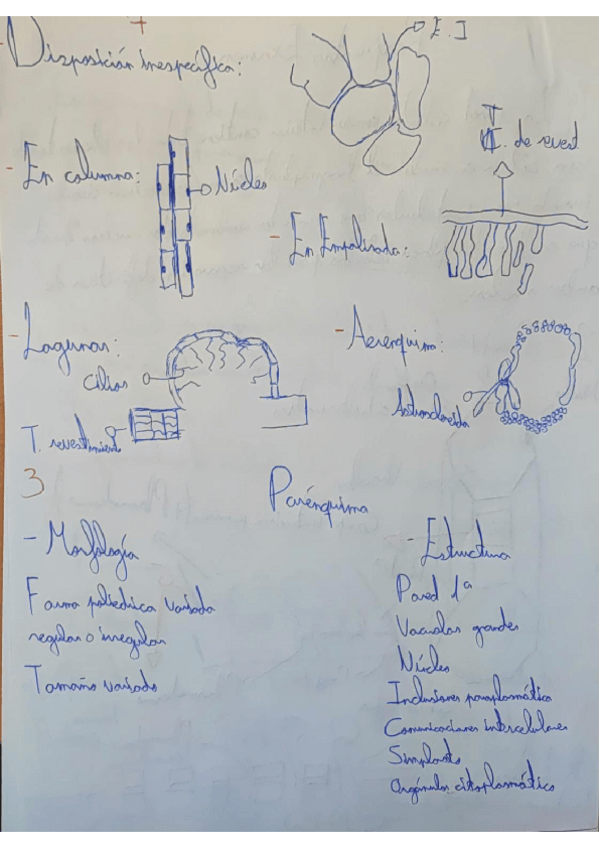 +
- Disposición inespecífica:
E. I
- En columna:
Núcleo
- En Empalizada:
T. de revest
- Lagunar:
Cilios
T. revestimient
- Aerénquima:
Astroesclereida
3
Parénquima
- Morfología
Forma poliédrica variada
regular o irregular
Tamaño variado
- Estructura
Pared 1ª
Vacuolas grandes
Núcleo
Inclusiones paraplasmática
Comunicaciones intercelulares
Simplasto
Orgánulos citoplasmático